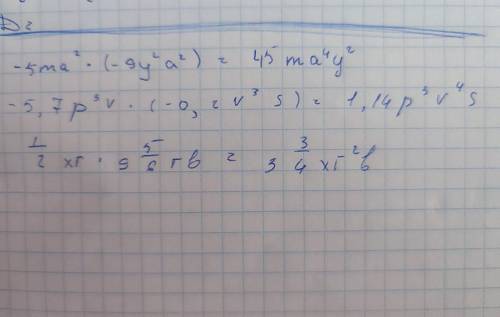 D 2
-5ma² · (-9y²a²) = 45 ma⁴y²
-5,7p³v · (-0,2v³s) = 1,14p³v⁴s
1/2 хг · 9 5/6 гв = 3 3/4 хг²в